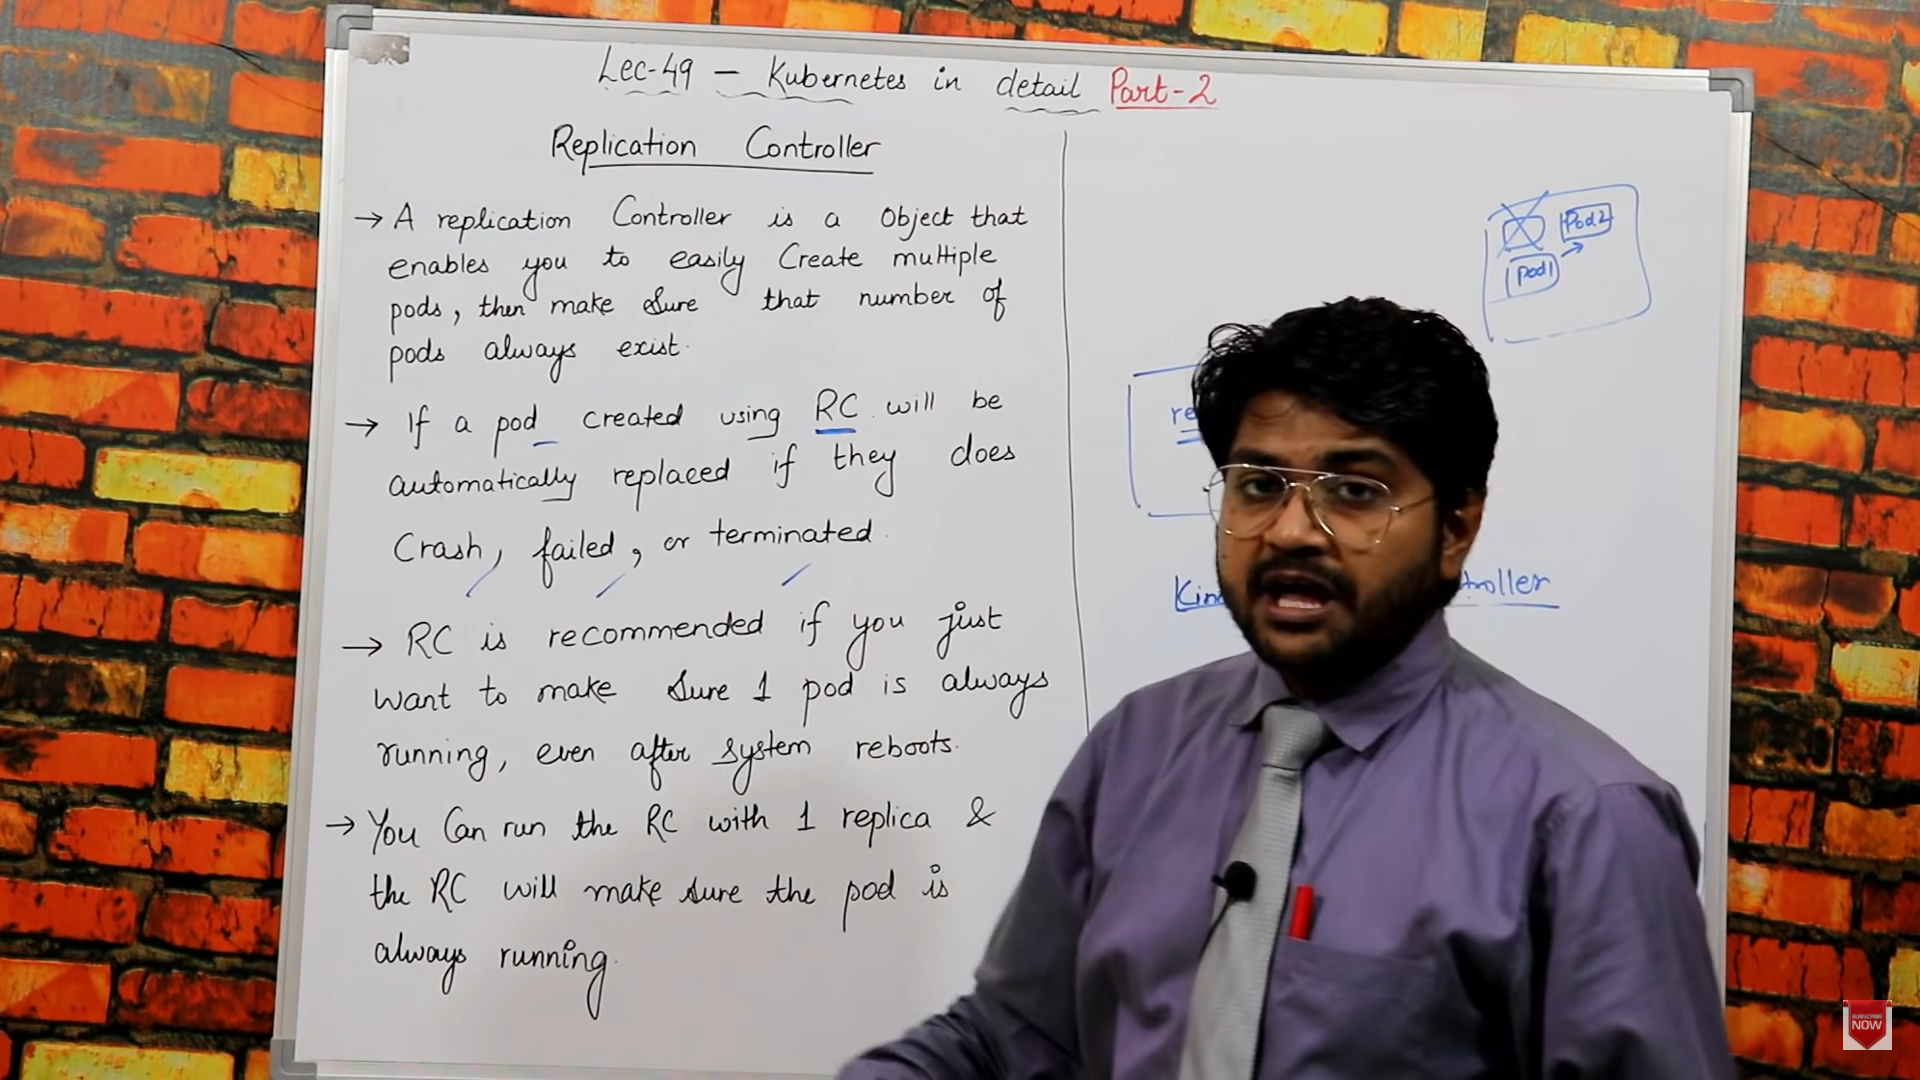 Lec-49 - Kubernetes in detail Part-2
Replication Controller
→ A replication Controller is a Object that
enables you to easily Create multiple
pods, then make Sure that number of
pods always exist.
→ If a pod created using RC will be
automatically replaced if they does
Crash, failed, or terminated.
→ RC is recommended if you just
want to make Sure 1 pod is always
running, even after system reboots.
→ You Can run the RC with 1 replica &
the RC will make sure the pod is
always running.
Pod2
Pod1
re
Kind
troller
SUBSCRIBE
NOW